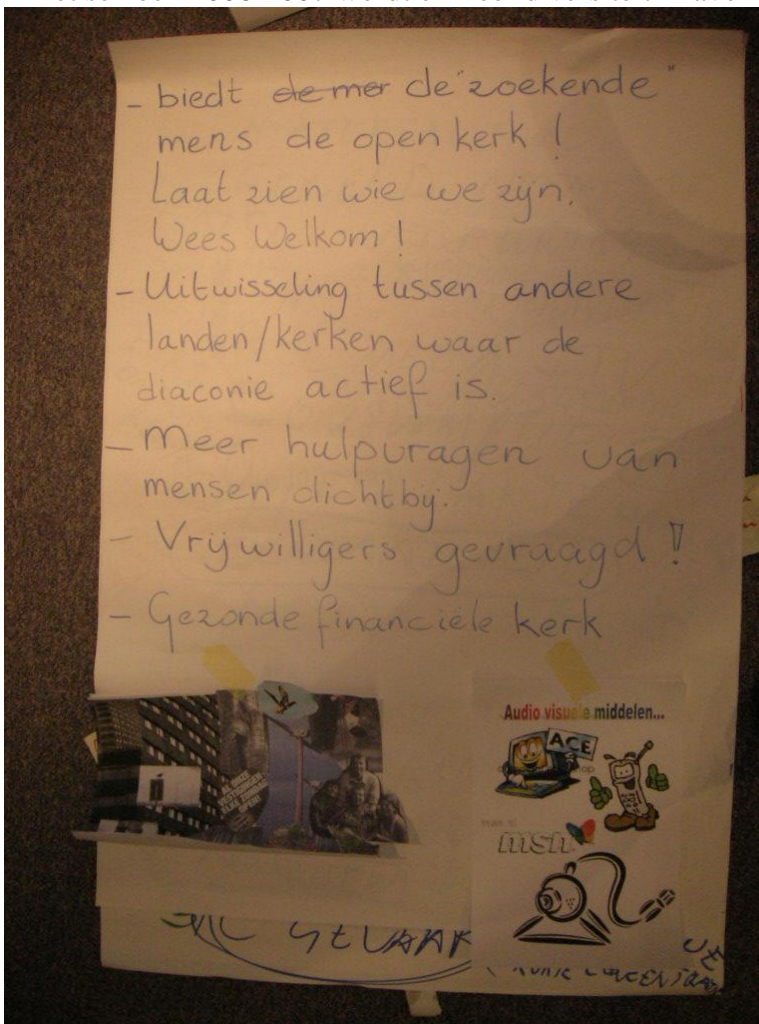 - biedt de mer de "zoekende"
mens de open kerk !
Laat zien wie we zijn.
Wees Welkom !
- Uitwisseling tussen andere
landen/kerken waar de
diaconie actief is.
- Meer hulpvragen van
mensen dichtbij.
- Vrijwilligers gevraagd !
- Gezonde financiele kerk
Audio visuele middelen...
ACE
msn